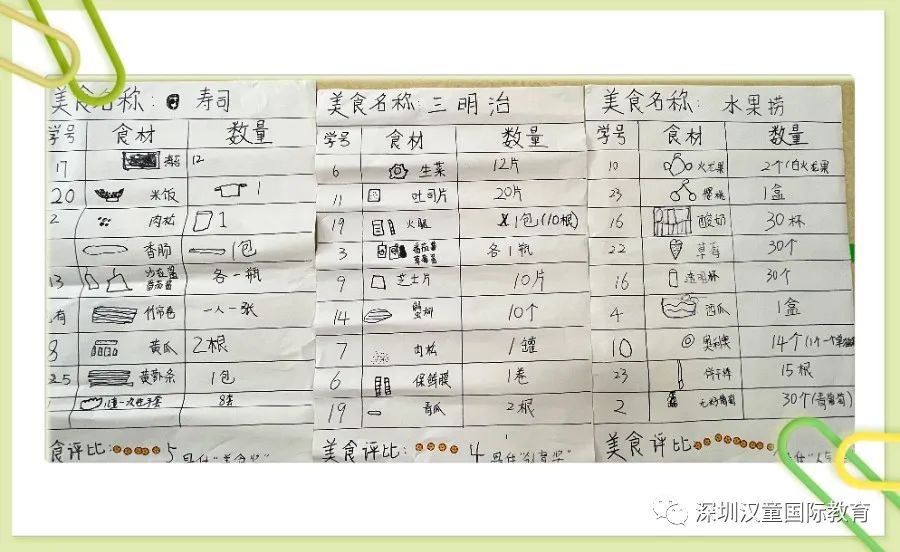 美食名称: 寿司
学号 食材 数量
17 海苔 12
20 米饭 1
2 肉松 1
香肠 1包
13 沙拉酱 番茄酱 各一瓶
有 竹帘卷 一人一张
黄瓜 2根
25 黄萝卜条 1包
一次性手套 8套
食评比: 5
美食名称: 三明治
学号 食材 数量
6 生菜 12片
11 吐司片 20片
19 火腿 1包(10根)
3 番茄酱 草莓酱 各1瓶
9 芝士片 10片
14 10个
7 肉松 1罐
6 保鲜膜 1卷
19 青瓜 2根
美食评比: 4
美食名称: 水果捞
学号 食材 数量
10 火龙果 2个(白火龙果
23 樱桃 1盒
16 酸奶 30杯
22 草莓 30个
16 透明杯 30个
4 西瓜 1盒
10 奥利奥 14个
23 饼干棒 15根
2 无籽葡萄 30个(青葡萄)
美食评比:
深圳汉童国际教育